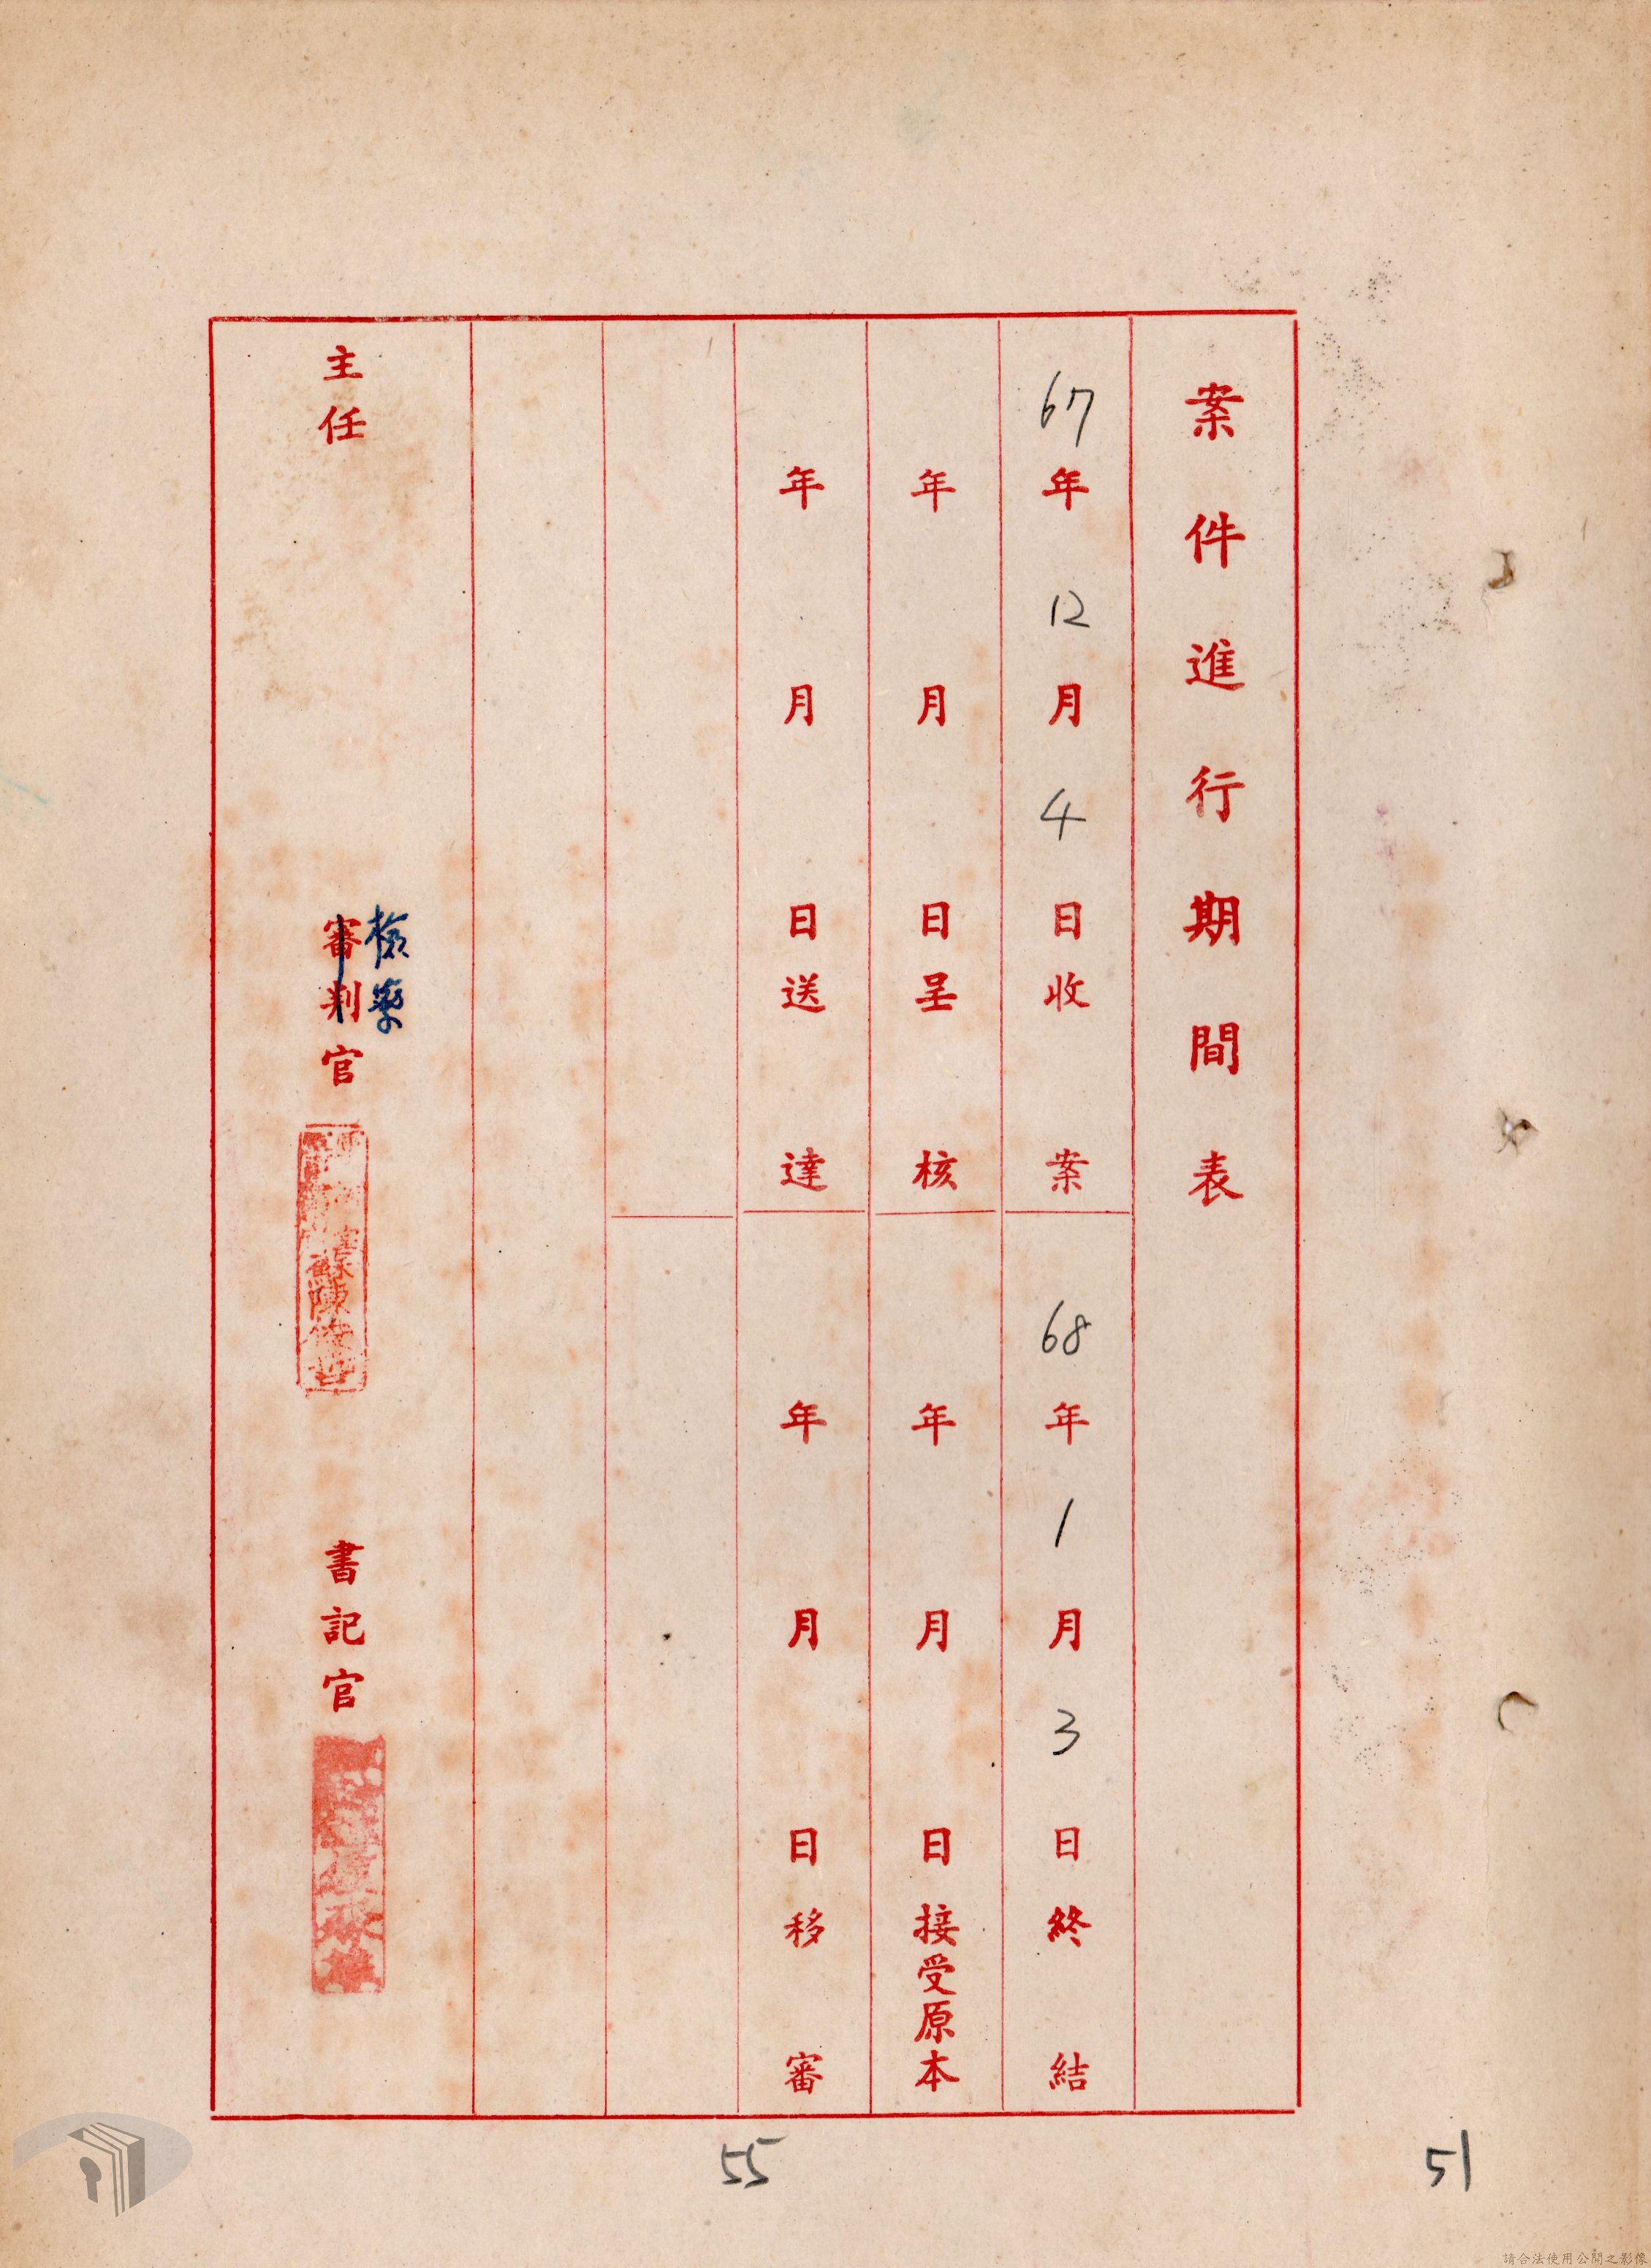 案件進行期間表
67年12月4日收案
68年1月3日終結
年月日呈核
年月日接受原本
年月日送達
年月日移審
主任
審判官
檢察
書記官
55
51
請合法使用公開之影像